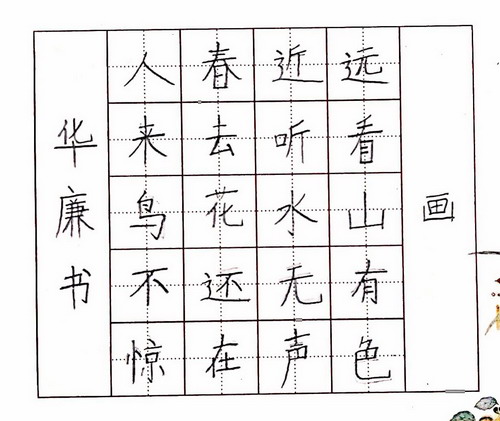 画
远看山有色
近听水无声
春去花还在
人来鸟不惊
华廉书